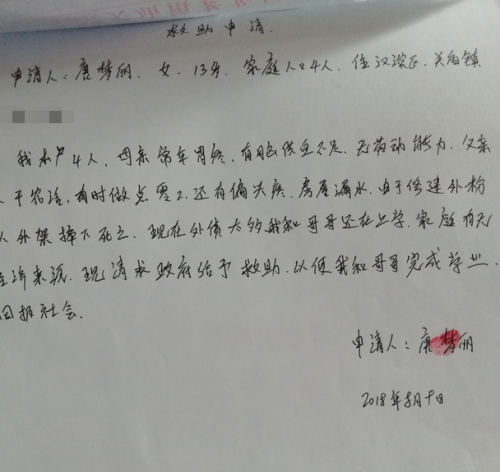 救助申请
申请人：唐梦丽．女．13岁．家庭人口4人．住汉滨区．关庙镇
我本户4人，母亲常年胃疼，有脑供血不足，无劳动能力．父亲
干农活，有时做点零工，还有偏头疼．房屋漏水．由于修建外粉
从外架掉下死亡．现在外债太多我和哥哥还在上学．家庭有无
经济来源．现请求政府给予救助．以便我和哥哥完成学业．
回报社会．
申请人：唐梦丽
2018年5月 日